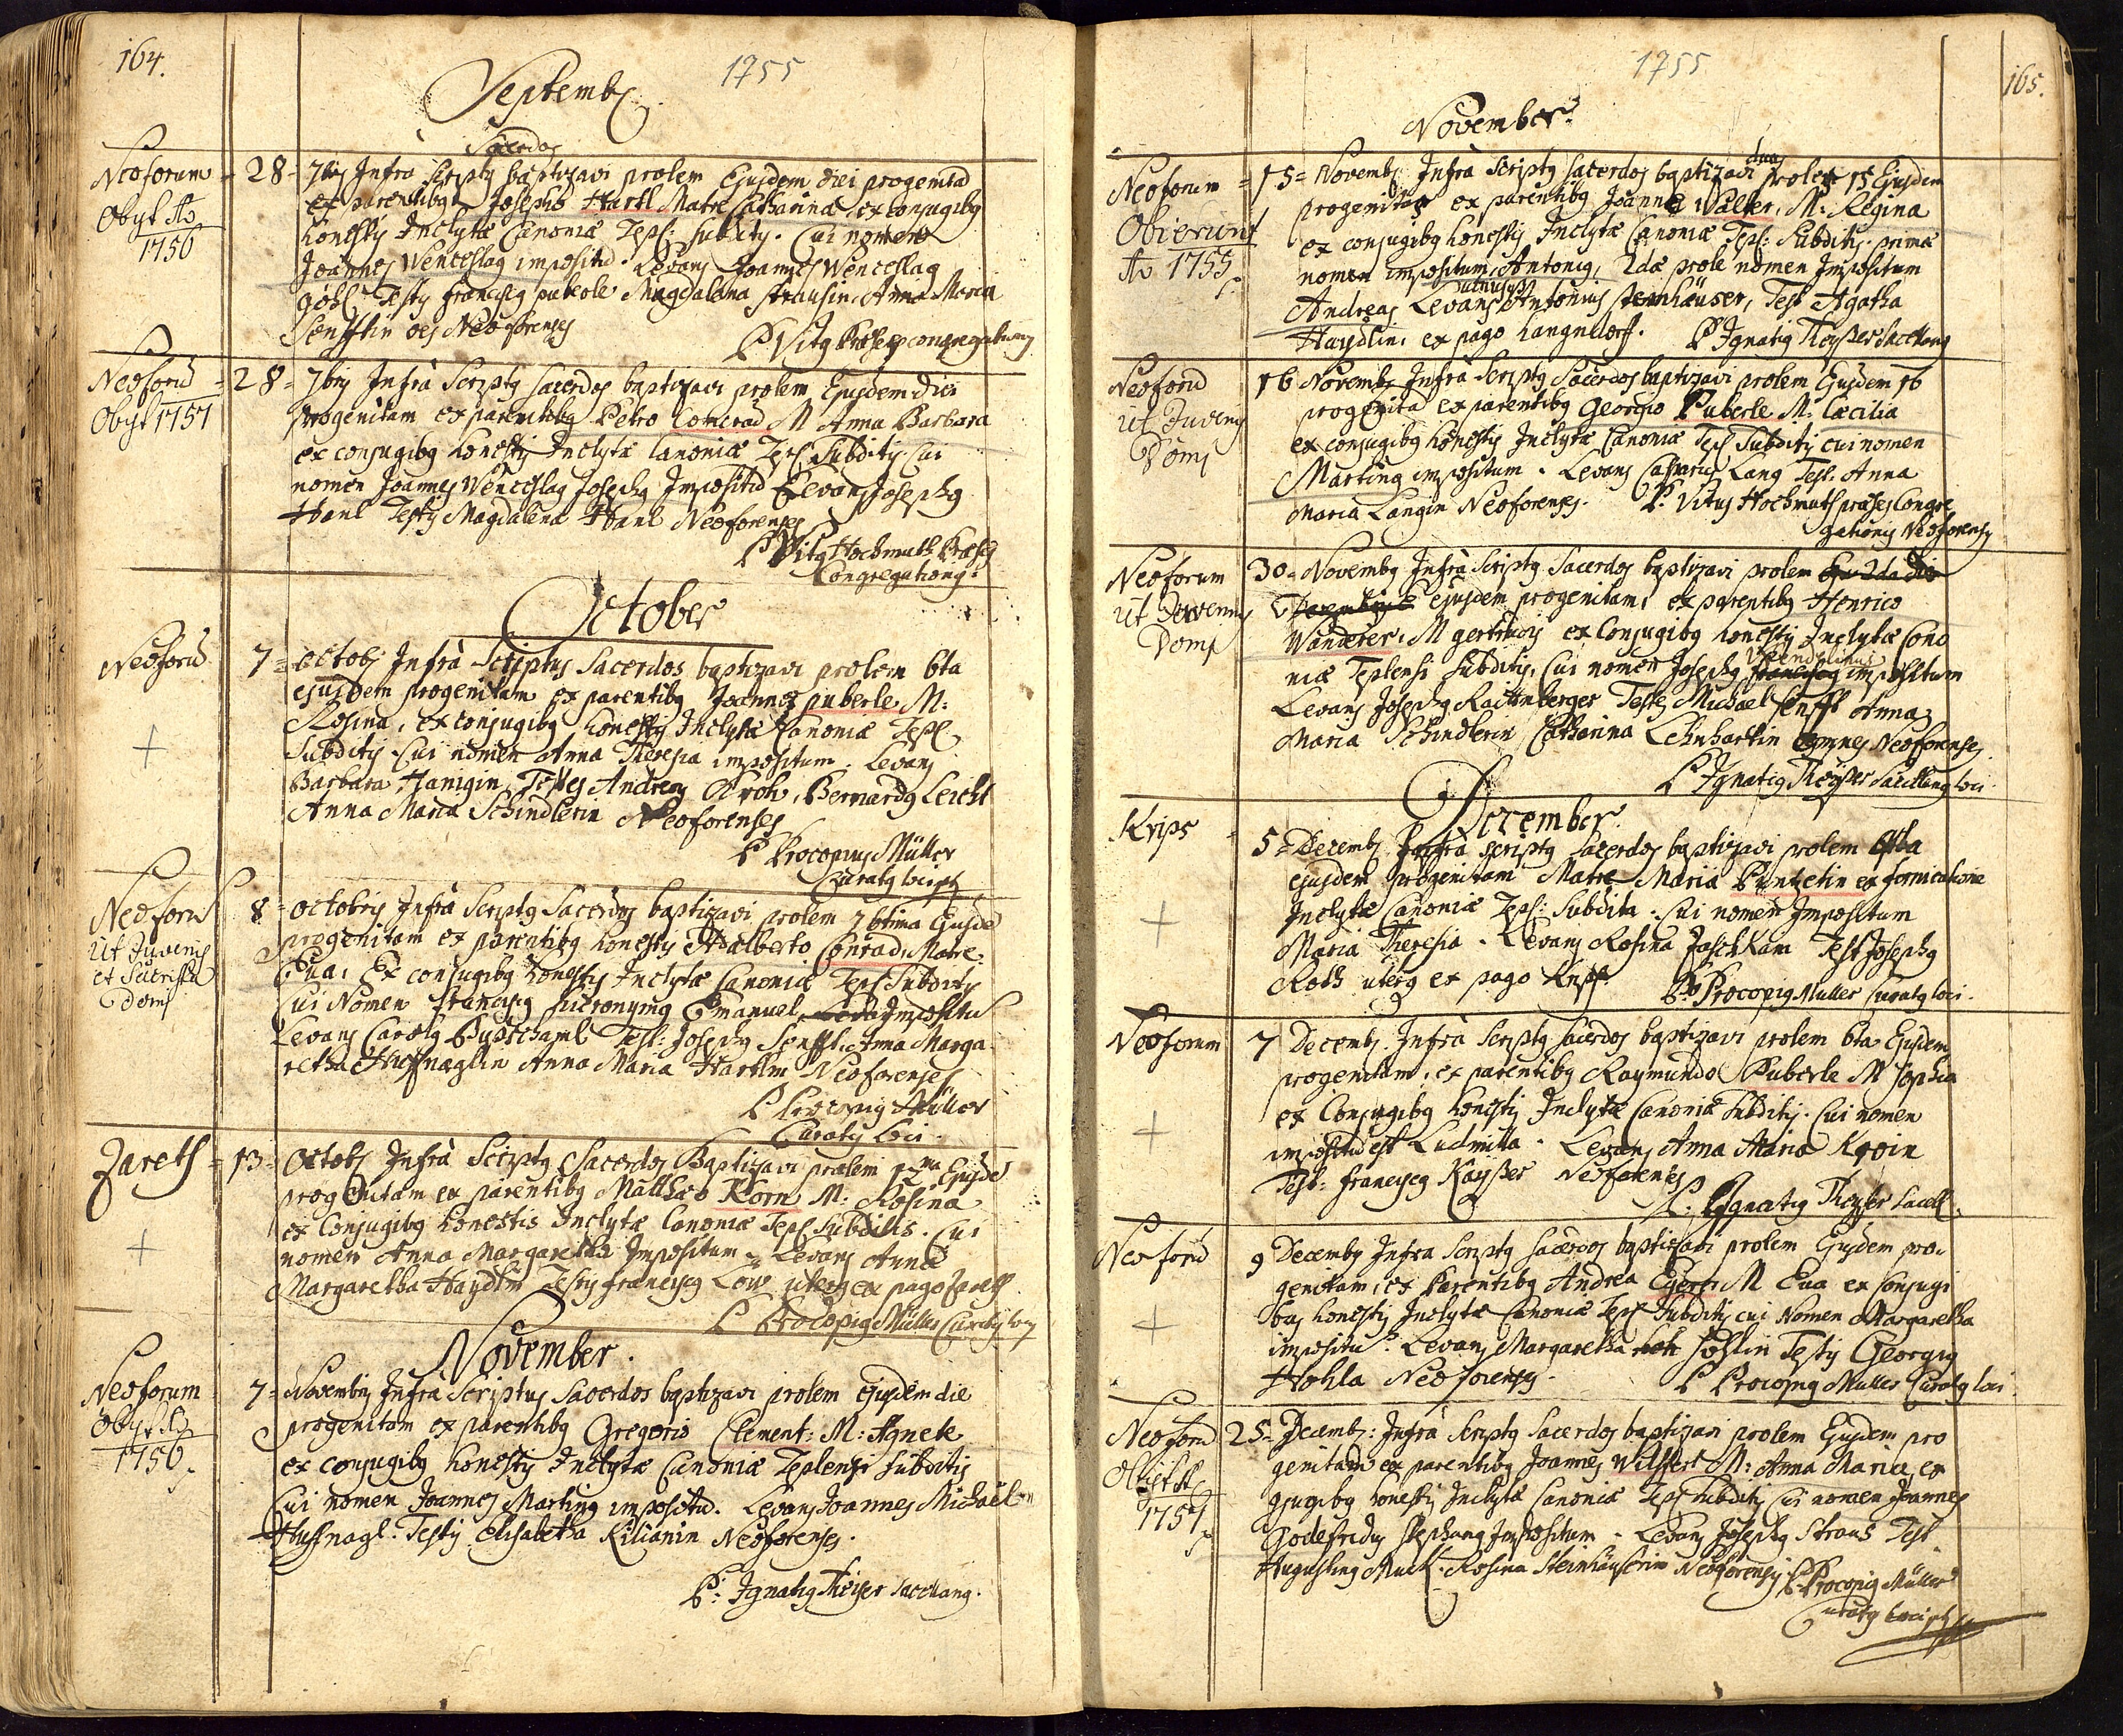 164.
1755
Septembr
Neoforum
Obyt Ao
1756
Sacerdos
28 7bris Infra Scriptus baptizavi prolem Ejusdem diei progenitā
ex parentibus Josepho Hartl Matre Catharina ex conjugibus
honestis Inclytæ Canoniæ Tepl: subditis. Cui nomen
Joannes Wenceslaus impositū. Levans Joannes Wenceslaus
Göhl Testis franciscus puberle Magdalena strausin, Anna Maria
Senfftin oes Neoforenses
P Vitus Præses congregationis
Neoforū
Obyt 1757
28 7bris Infrà Scriptus Sacerdos baptizavi prolem Ejusdem diei
progenitam ex parentibus Petro Conrad M Anna Barbara
ex conjugibus honestis Inclytæ Canoniæ Tepl Subditis Cui
nomen Joannes Wenceslaus Josephus Impositū Levans Josephus
Hanl Testis Magdalena Hanl Neoforenses
P Vitus Hochmuth Præses
Congregationis
October
Neoforū
7 octobr Infrà Scriptus Sacerdos baptizavi prolem 6ta
ejusdem progenitam ex parentibus Joanne puberle M:
Rosina, ex conjugibus honestis Inclytæ Canoniæ Tepl
Subditis Cui nomen Anna Theresia impositum. Levans
Barbara Hanigin Testes Andreas Kroh, Bernardus Leicht
Anna Maria Schindlerin Neoforenses
P Procopius Müller
Curatus loci
Neoforū
Ut Juvenis
et Sutrissa
Domi
8 octobris Infrà Scriptus Sacerdos baptizavi prolem 7btima Ejusdē
progenitam ex parentibus honestis Adalberto Conrad, Matre
Eua, Ex conjugibus honestis Inclytæ Canoniæ Tepl Subditis
Cui Nomen franciscus hieronymus Emanuel Impositū
Levans Carolus Test: Josephus Senfft. Anna Marga
retha Huffnaglin Anna Maria Hartlin Neoforenses
P Procopius Müller
Curatus loci
Zareth
13 Octobr Infrà Scriptus Sacerdos Baptizavi prolem 12ma Ejusdē
progenitam ex parentibus Matthæo Korn M: Rosina
ex Conjugibus honestis Inclytæ Canoniæ Tepl Subditis. Cui
nomen Anna Margaretha Impositum. Levans Anna
Margaretha Haydlin Testis franciscus Löw uterque ex pago Zareth
P Procopius Müller Curatus loci
November
Neoforum
Obyt Ao
1756
7 Novembris Infrà Scriptus Sacerdos baptizavi prolem ejusdem die
progenitam ex parentibus Gregorio Clement: M: Agnete
ex conjugibus honestis Inclytæ Canoniæ Teplensis Subditis
Cui nomen Joannes Martinus impositū. Levans Joannes Michaël
Huffnagl. Testis Elisabetha Kilianin Neoforenses.
P: Ignatius Theyser Sacellanus.
1755
165.
November
Neoforum
Obierunt
Ao 1755
15 Novembr Infrà Scriptus sacerdos baptizavi duas proles 15 Ejusdem
progenitas ex parentibus Joanne Walter, M: Regina
ex conjugibus honestis Inclytæ Canoniæ Tepl: Subditis. primæ
nomen impositum Antonius, 2dæ prole nomen Impositum
Andreas Levans utriusque Antonius steinhäuser, Test Agatha
Haydlin, ex pago Langndorff. P Ignatius Theyser Sacellanus
Neoforū
Ut Juvenis
Domi
16 Novembr Infrà Scriptus Sacerdos baptizavi prolem Ejusdem 16
progenitā ex parentibus Georgio Puberle M: Cæcilia
ex conjugibus honestis Inclytæ Canoniæ Tepl Subditis cui nomen
Martinus impositum. Levans Casparus Lang Test. Anna
Maria Langin Neoforenses. P. Vitus Hochmuth præses Congre
gationis Neoforensis
Neoforum
Ut Juvenis
Domi
30 Novembr Infrà Scriptus Sacerdos baptizavi prolem Ejus 2da die
Decembris ejusdem progenitam, ex parentibus Henrico
Wanderer, M gertrudis ex Conjugibus honestis Inclytæ Cano
niæ Teplensi Subditis, Cui nomen Josephus Wendelinus franciscus impositum
Levans Josephus Rattenberger Testes Michael Senfft Anna
Maria Schindlerin Catharina Lehnhartin omnes Neoforenses
P Ignatius Theyser Sacellanus loci
December
Krips
5 Decembr Infrà scriptus Sacerdos baptizavi prolem
ejusdem progenitam Matre Maria Puntzetin ex fornicatione
Inclytæ Canoniæ Tepl: Subdita. Cui nomen Impositum
Maria Theresia. Levans Rosina Jaschkam Test Josephus
Roth uterque ex pago Krips P Procopius Müller Curatus loci.
Neoforum
7 Decembr Infrà Scriptus Sacerdos baptizavi prolem 6ta Ejusdem
progenitam, ex parentibus Raymundo Puberle M Sophia
ex Conjugibus honestis Inclytæ Canoniæ Subditis. Cui nomen
impositū est Ludmilla. Levans Anna Maria Kroin
Test: franciscus Kayßer Neoforenses
P. Ignatius Theyser Sacell.
Neoforū
9 Decembr Infra Scriptus Sacerdos baptizavi prolem Ejusdem pro
genitam, ex Parentibus Andrea Egerer M Eua ex Conjugi
bus honestis Inclytæ Canoniæ Tepl Subditis cui Nomen Margaretha
impositū. Levans Margaretha Hohlin Testis Georgius
Hohla Neoforenses. P Procopius Müller Curatus loci.
Neoforū
Obyt Ao
1757
25 Decembr: Infrà Scriptus Sacerdos baptizavi prolem Ejusdem pro
genitam ex parentibus Joannes Wilfert M: Anna Maria, ex
gjugibus honestis Inclytæ Canoniæ Tepl Subditis Cui nomen Joannes
Godefridus Stephanus Impositum. Levans Josephus Straus Test
Augustinus Muck. Rosina Steinhäuserin Neoforensis P. Procopius Müller
Curatus loci